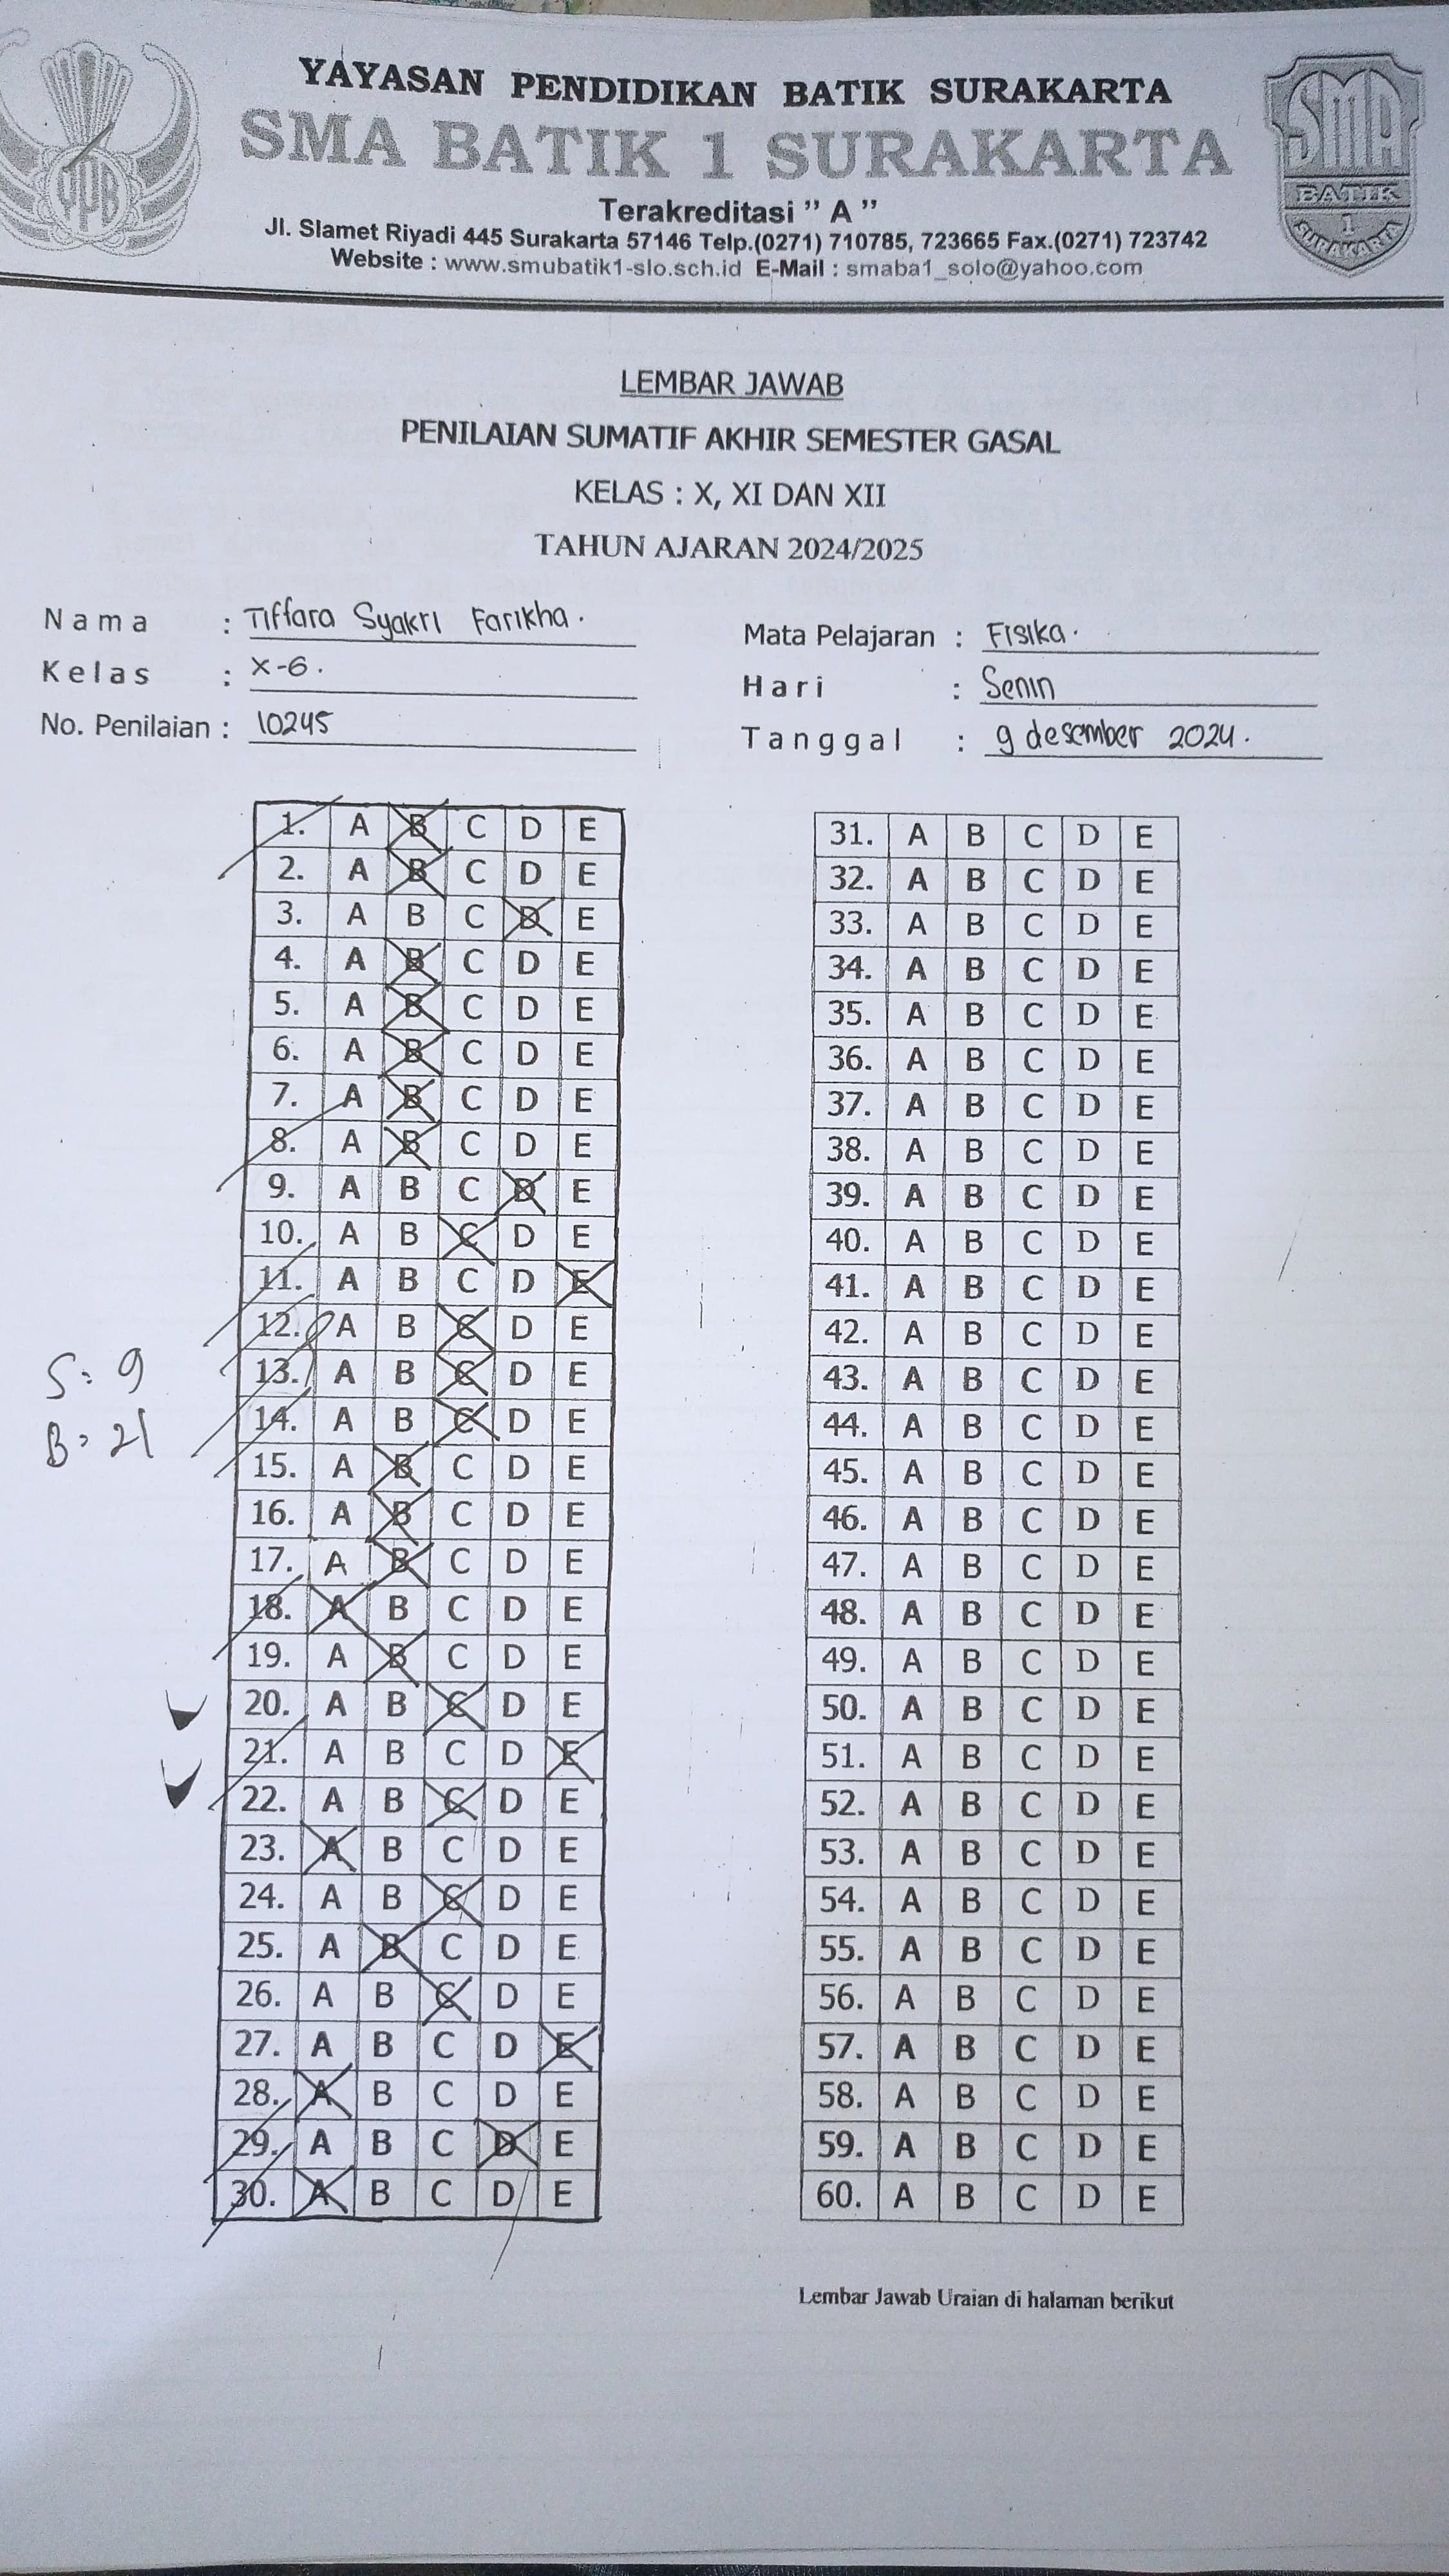 YAYASAN PENDIDIKAN BATIK SURAKARTA
SMA BATIK 1 SURAKARTA
Terakreditasi " A "
Jl. Slamet Riyadi 445 Surakarta 57146 Telp.(0271) 710785, 723665 Fax.(0271) 723742
Website : www.smubatik1-slo.sch.id E-Mail : smaba1_solo@yahoo.com
YPB
SMA
BATIK
1
SURAKARTA
LEMBAR JAWAB
PENILAIAN SUMATIF AKHIR SEMESTER GASAL
KELAS : X, XI DAN XII
TAHUN AJARAN 2024/2025
Nama : Tiffara Syakri Farikha.
Kelas : X-6.
No. Penilaian : 10245
Mata Pelajaran : Fisika.
Hari : Senin
Tanggal : 9 desember 2024.
1. A B C D E
2. A B C D E
3. A B C D E
4. A B C D E
5. A B C D E
6. A B C D E
7. A B C D E
8. A B C D E
9. A B C D E
10. A B C D E
11. A B C D E
12. A B C D E
13. A B C D E
14. A B C D E
15. A B C D E
16. A B C D E
17. A B C D E
18. A B C D E
19. A B C D E
20. A B C D E
21. A B C D E
22. A B C D E
23. A B C D E
24. A B C D E
25. A B C D E
26. A B C D E
27. A B C D E
28. A B C D E
29. A B C D E
30. A B C D E
S: 9
B: 21
31. A B C D E
32. A B C D E
33. A B C D E
34. A B C D E
35. A B C D E
36. A B C D E
37. A B C D E
38. A B C D E
39. A B C D E
40. A B C D E
41. A B C D E
42. A B C D E
43. A B C D E
44. A B C D E
45. A B C D E
46. A B C D E
47. A B C D E
48. A B C D E
49. A B C D E
50. A B C D E
51. A B C D E
52. A B C D E
53. A B C D E
54. A B C D E
55. A B C D E
56. A B C D E
57. A B C D E
58. A B C D E
59. A B C D E
60. A B C D E
Lembar Jawab Uraian di halaman berikut